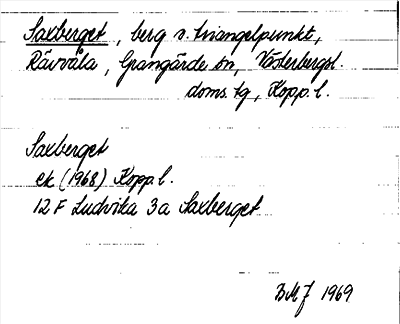 Saxberget, berg o. triangelpunkt,
Rävvåla, Grangärde sn, Västerbergsl.
doms. tg, Kopp. l.
Saxberget
ek (1968) Kopp. l.
12 F Ludvika 3a Saxberget
BMJ 1969